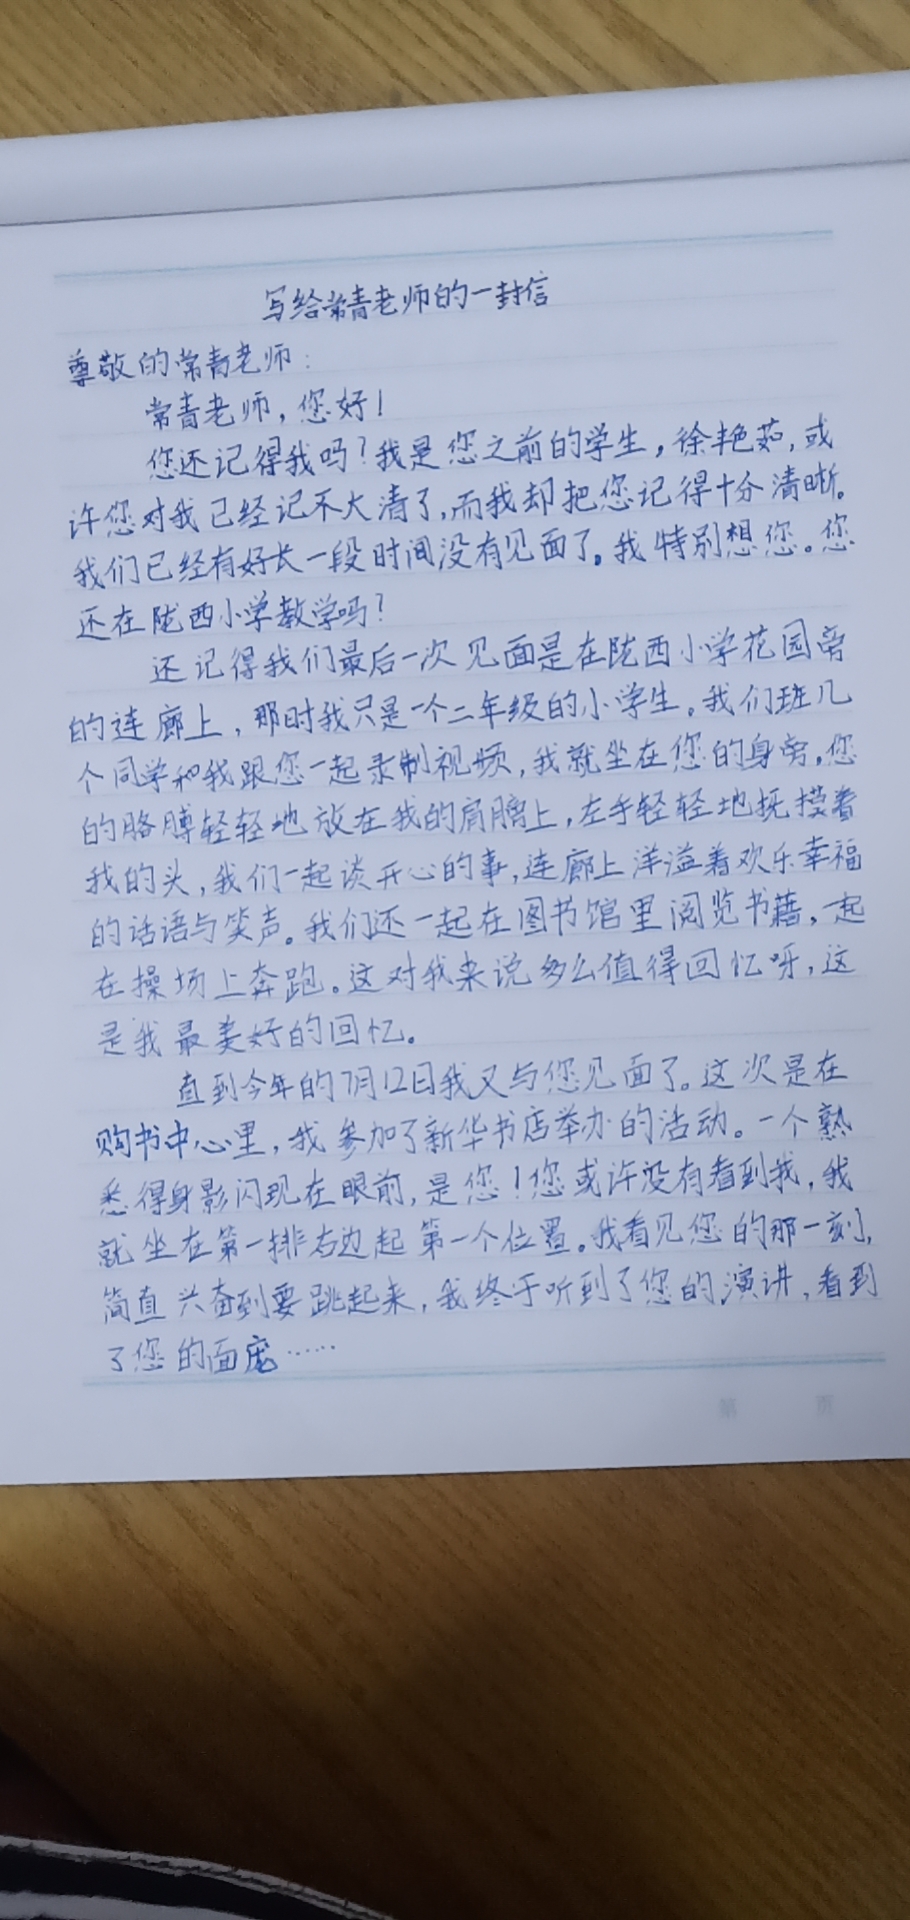 写给常青老师的一封信
尊敬的常青老师：
常青老师，您好！
您还记得我吗？我是您之前的学生，徐艳茹，或
许您对我已经记不大清了，而我却把您记得十分清晰。
我们已经有好长一段时间没有见面了。我特别想您。您
还在陇西小学教学吗？
还记得我们最后一次见面是在陇西小学花园旁
的连廊上，那时我只是一个二年级的小学生。我们班几
个同学和我跟您一起录制视频，我就坐在您的身旁。您
的胳膊轻轻地放在我的肩膀上，左手轻轻地抚摸着
我的头，我们一起谈开心的事，连廊上洋溢着欢乐幸福
的话语与笑声。我们还一起在图书馆里阅览书籍，一起
在操场上奔跑。这对我来说多么值得回忆呀，这
是我最美好的回忆。
直到今年的7月12日我又与您见面了。这次是在
购书中心里，我参加了新华书店举办的活动。一个熟
悉得身影闪现在眼前，是您！您或许没有看到我，我
就坐在第一排右边起第一个位置。我看见您的那一刻，
简直兴奋到要跳起来，我终于听到了您的演讲，看到
了您的面庞……
第 页